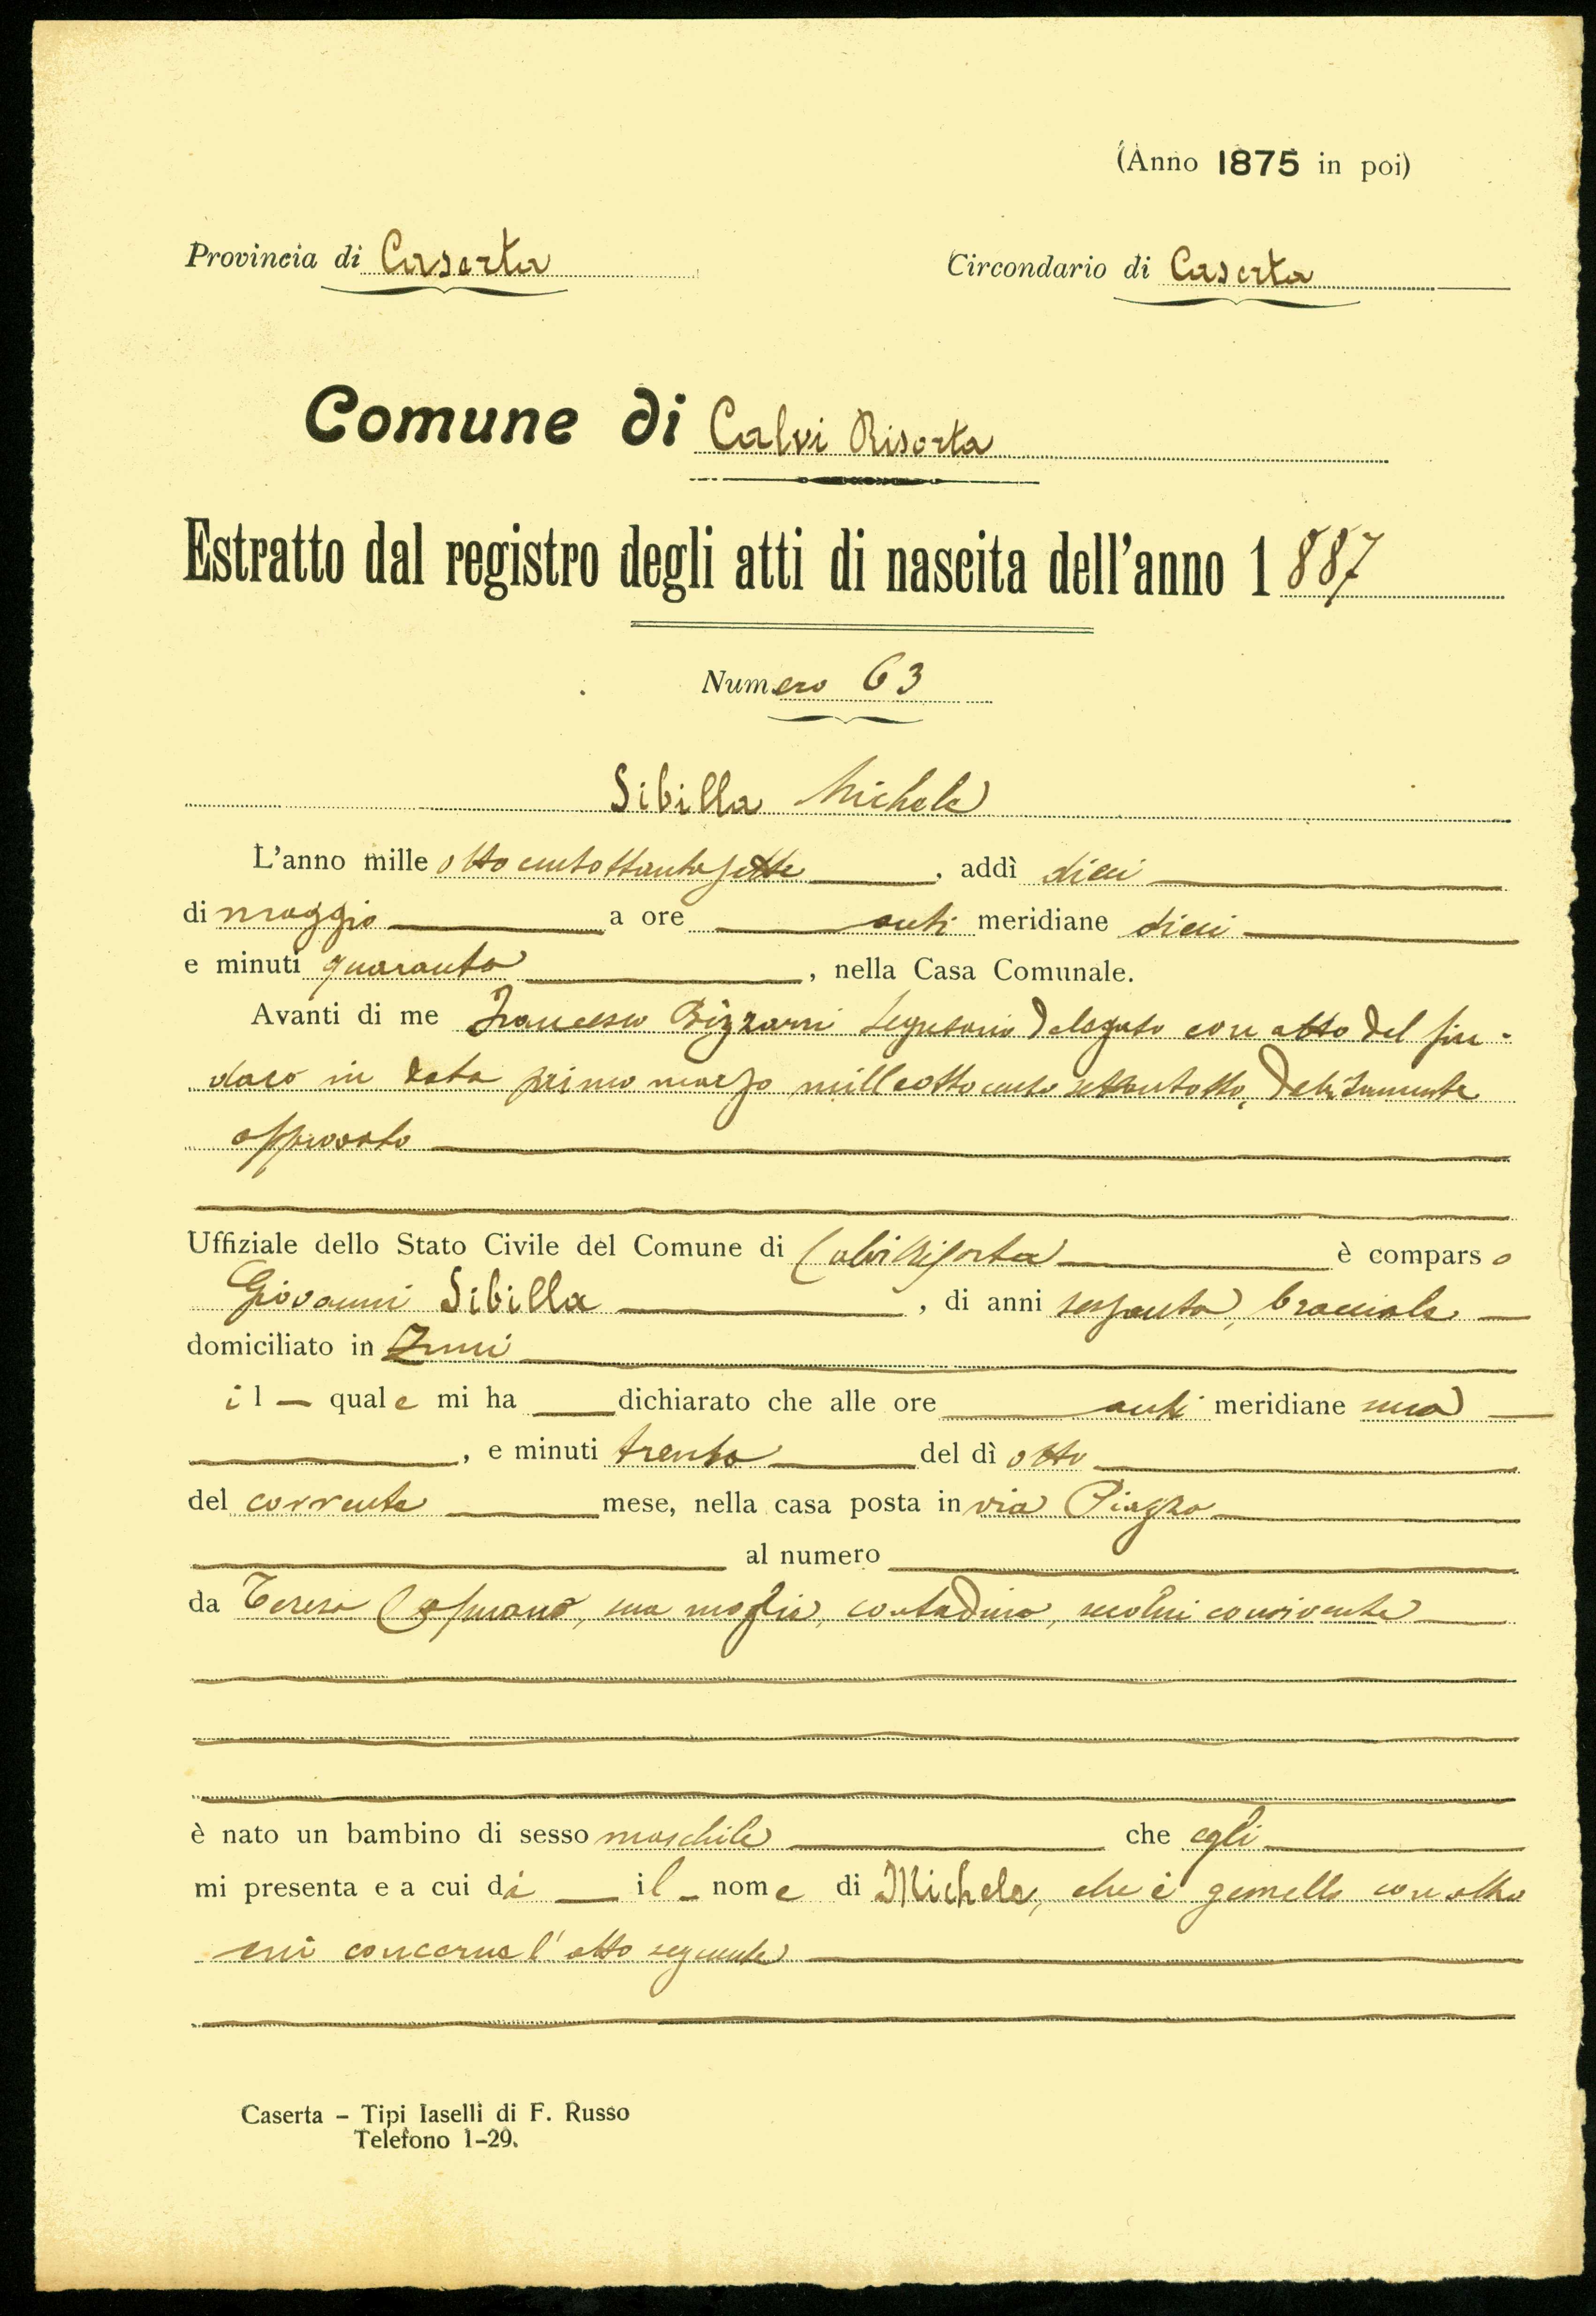 (Anno 1875 in poi)
Provincia di Caserta Circondario di Caserta
Comune di Calvi Risorta
Estratto dal registro degli atti di nascita dell'anno 1887
Numero 63
Sibilla Michele
L'anno mille ottocentottantasette, addì dieci
di maggio a ore anti meridiane dieci
e minuti quaranta, nella Casa Comunale.
Avanti di me Francesco Bizzarri Segretario Delegato con atto del Sin-
daco in data primo marzo milleottocento settantotto, debitamente
approvato
Uffiziale dello Stato Civile del Comune di Calvi Risorta è comparso
Giovanni Sibilla, di anni sessanta, bracciale
domiciliato in Zuni
il quale mi ha dichiarato che alle ore anti meridiane una
, e minuti trenta del dì otto
del corrente mese, nella casa posta in via Piazza
al numero
da Teresa sua moglie, contadina, secolui convivente
è nato un bambino di sesso maschile che egli
mi presenta e a cui dà il nome di Michele, che è gemello con altro
cui concerne l'atto seguente
Caserta – Tipi Iaselli di F. Russo
Telefono 1-29.